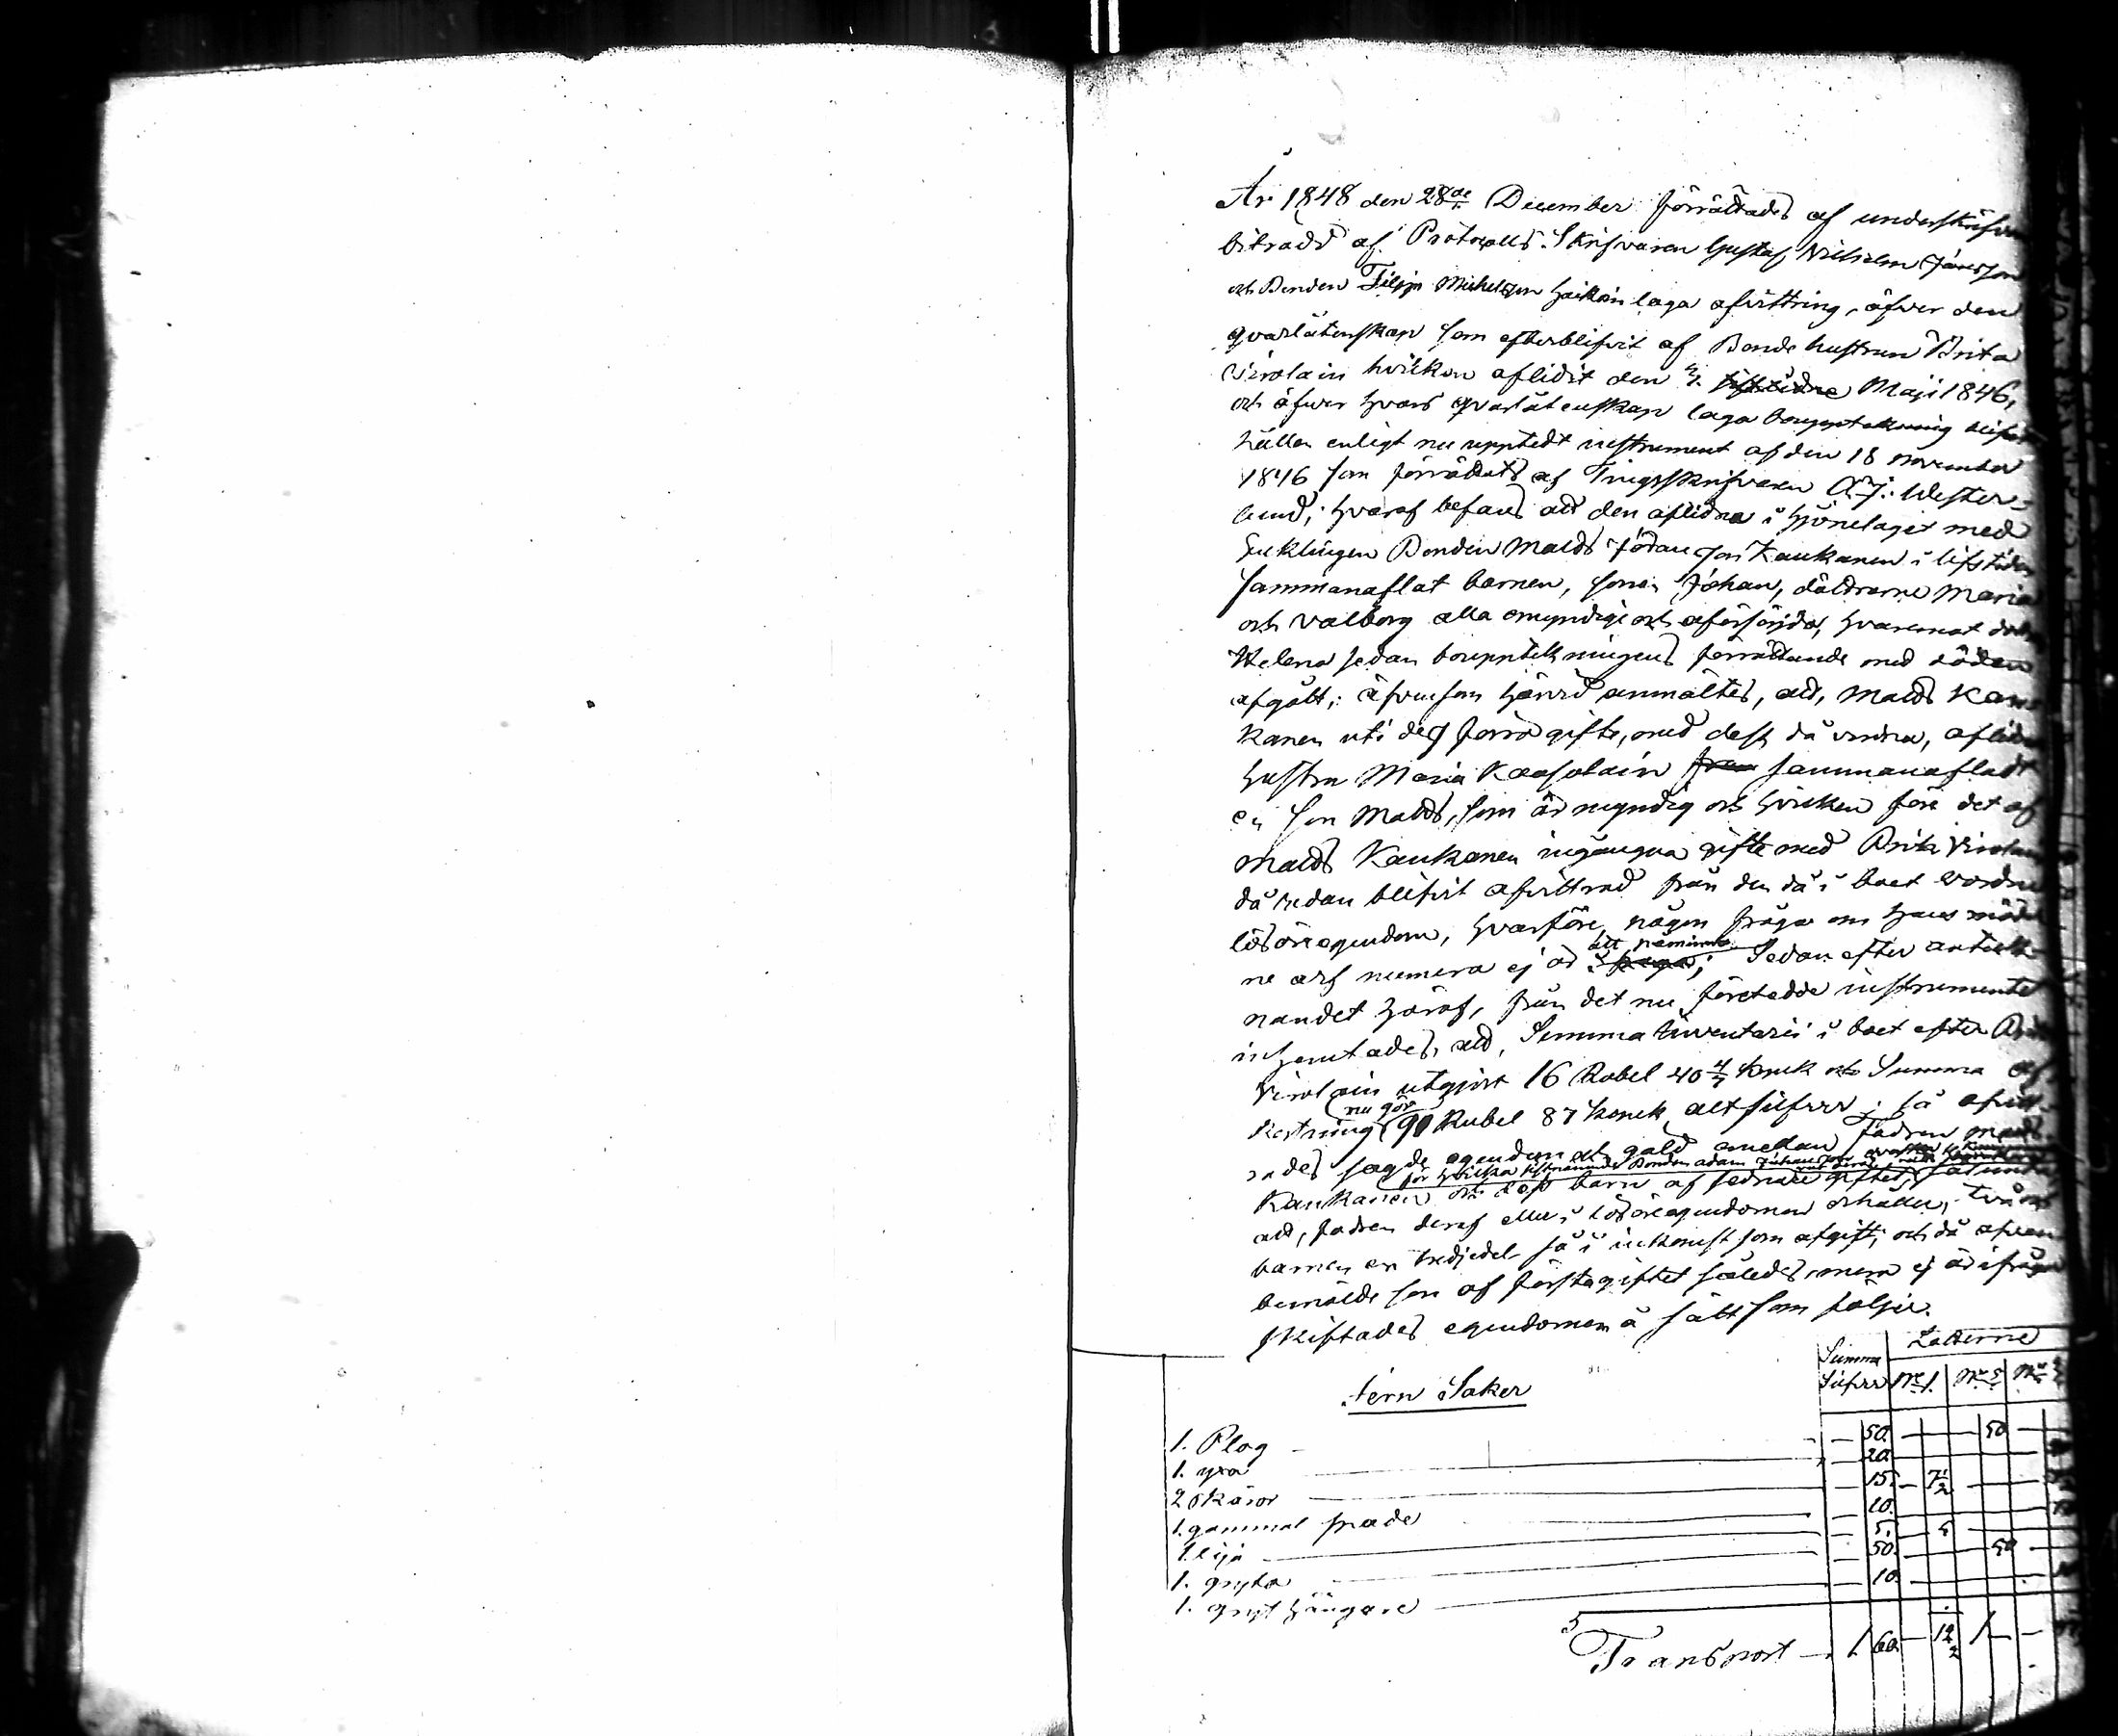 År 1848 den 28de December förrättades af underskrifven
biträdd af Protocolls Skrifvaren Gustaf Wilhelm Jansson
och Bonden Filip Michelsson laga afvittring, öfver den
qvarlåtenskap som efterblifvit af Bonde hustrun Brita
Virolain hvilken aflidit den Maji 1846,
och öfver hvars qvarlåtenskap laga bouppteckning blifvit
hållen enligt nu uppted instrument af den 18 november
1846 som förrättats af Tingsskrifvaren A. J. Wester-
lund; hvaraf befans att den aflidna i hjonelaget med
Enklingen Bonden Matts Johansson Kaukanen i lifstiden
sammanaflat barnen, sonen Johan, döttrarne Maria
och Valborg alla omyndige och oförsörjda, hvaremot
Helena sedan bouppteckningens förrättande med döden
afgått; äfvensom härvid anmältes, att, Matts Kau-
kanen uti dess förra gifte, med dess då verdna, aflidna
hustru Maria Kaasolain sammanaflat
en son Matts, som är myndig och hvilken före det af
Matts Kaukanen ingångna gifte med Brita Virolain
då redan blifvit afvittrad från den då i boet vordne
lösöreegendom, hvarföre, någon fråga om hans möder
ne arf numera ej är att påminna; Sedan efter anteck-
nandet häraf, från det nu företedde instrumentet
inhemtades, att, Summa Inventarii i boet efter Brita
Virolain utgjort 16 Rubel 40 4/7 kopek och Summa af
kortning nu gör 90 Rubel 87 kopek allt silfver; så afvitt-
rades sagde egendom och gäld emellan fadren Matts
för hvilka Bonden Adam Johansson
Kaukanen och dess barn af sednare giftet,
att, fadren deraf eller i lösöreegendomen erhåller, två och
barnen en tredjedel så i inkomst som afgift; och då äfven
bemälde son af första giftet således, mera ej är i fråga
skiftades egendomen å sätt som följer.
Summa Silfver Lotterne
No 1. No 2. No 3
Jern Saker
1. Plog — 50. — 50 —
1. yxa — 20.
2 skäror — 15. — 7½
1. gammal spade — 10.
1. lija — 5. — 5
1. gryta — 50. — 50
1. gryt hängare — 10.
Transport — 1 60. — 12½ 1 —